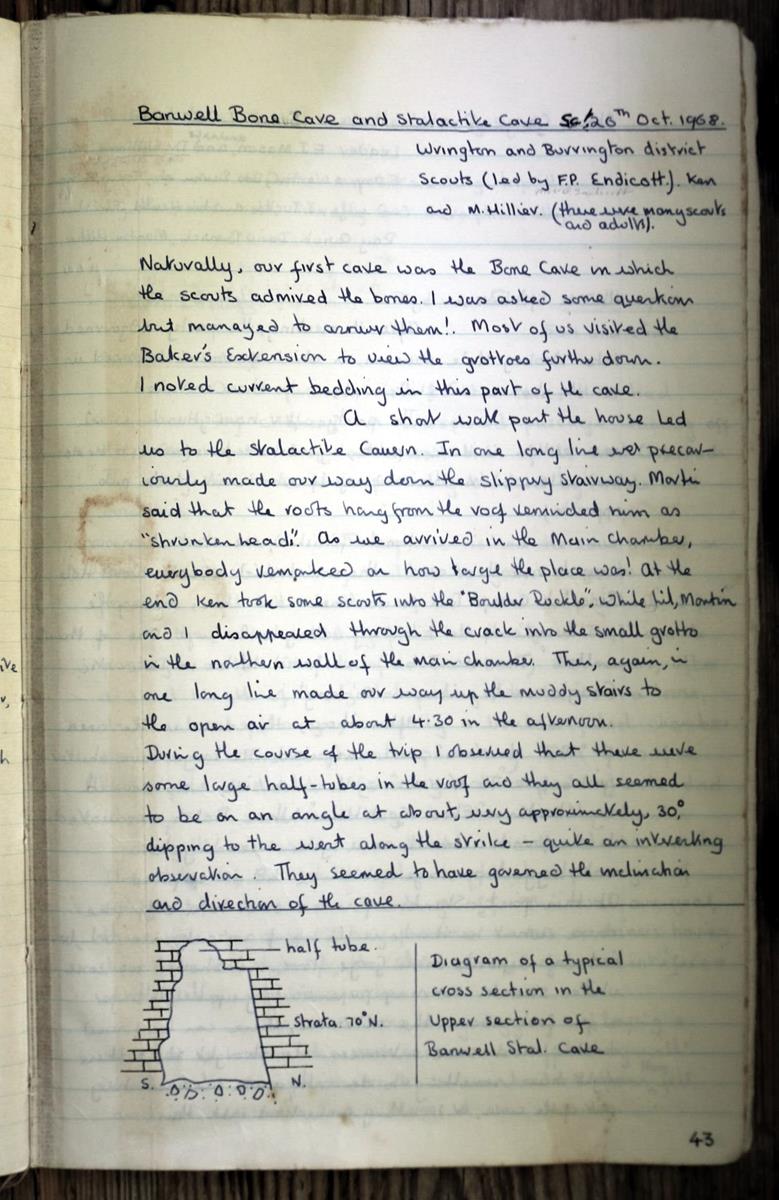 Banwell Bone Cave and Stalactite Cave Sat 26th Oct. 1968.
Wrington and Burrington district
Scouts (led by F.P. Endicott). Ken
and M. Hillier. (there were many scouts
and adults).
Naturally, our first cave was the Bone Cave in which
the scouts admired the bones. I was asked some questions
but managed to answer them!. Most of us visited the
Baker's Extension to view the grottoes further down.
I noted current bedding in this part of the cave.
A short walk past the house led
us to the Stalactite Cavern. In one long line we precar-
iously made our way down the slippery stairway. Martin
said that the roots hang from the roof reminded him as
"shrunken heads". As we arrived in the Main chamber,
everybody remarked on how large the place was! At the
end Ken took some scouts into the "Boulder Ruckle", while Lil, Martin
and I disappeared through the crack into the small grotto
in the northern wall of the main chamber. Then, again, in
one long line made our way up the muddy stairs to
the open air at about 4.30 in the afternoon.
During the course of the trip I observed that there were
some large half-tubes in the roof and they all seemed
to be on an angle at about, very approximately, 30°,
dipping to the west along the strike – quite an interesting
observation. They seemed to have governed the inclination
and direction of the cave.
half tube.
Strata. 70°N.
S. N.
Diagram of a typical
cross section in the
Upper section of
Banwell Stal. Cave
43